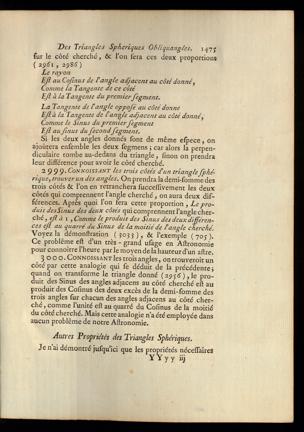 Des Triangles Spheriques Obliquangles. 1475
sur le côté cherché, & l'on fera ces deux proportions
(2961, 2986)
Le rayon
Est au Cosinus de l'angle adjacent au côté donné,
Comme la Tangente de ce côté
Est à la Tangente du premier segment.
La Tangente de l'angle opposé au côté donné
Est à la Tangente de l'angle adjacent au côté donné,
Comme le Sinus du premier segment
Est au sinus du second segment.
Si les deux angles donnés sont de même espece, on
ajoûtera ensemble les deux segmens; car alors la perpen-
diculaire tombe au-dedans du triangle, sinon on prendra
leur différence pour avoir le côté cherché.
2999. CONNOISSANT les trois côtés d'un triangle sphé-
rique, trouver un des angles. On prendra la demi-somme des
trois côtés & l'on en retranchera successivement les deux
côtés qui comprennent l'angle cherché, on aura deux dif-
férences. Après quoi l'on fera cette proportion, Le pro-
duit des Sinus des deux côtés qui comprennent l'angle cher-
ché, est à 1, Comme le produit des Sinus des deux différen-
ces est au quarré du Sinus de la moitié de l'angle cherché.
Voyez la démonstration (3033), & l'exemple (705).
Ce problème est d'un très-grand usage en Astronomie
pour connoître l'heure par le moyen de la hauteur d'un astre.
3000. CONNOISSANT les trois angles, on trouveroit un
côté par cette analogie qui se déduit de la précédente;
quand on transforme le triangle donné (2956), le pro-
duit des Sinus des angles adjacens au côté cherché est au
produit des Cosinus des deux excès de la demi-somme des
trois angles sur chacun des angles adjacens au côté cher-
ché, comme l'unité est au quarré du Cosinus de la moitié
du côté cherché. Mais cette analogie n'a été employée dans
aucun problème de notre Astronomie.
Autres Propriétés des Triangles Sphériques.
Je n'ai démontré jusqu'ici que les propriétés nécessaires
YYyy iij